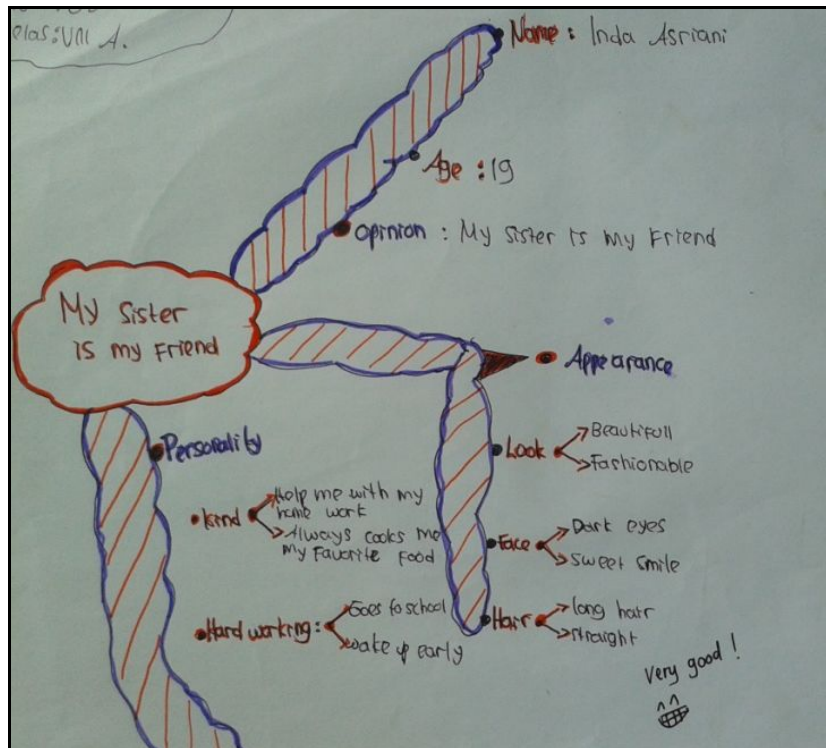 elas: VIII A.
Name : Inda Asriani
Age : 19
Opinion : My sister is my Friend
My Sister
is my Friend
Appearance
Look
Beautifull
Fashionable
Face
Dark eyes
sweet smile
Hair
long hair
straight
Personality
Kind
Help me with my
home work
Always cooks me
my Favorite Food
Hard working :
Goes to school
wake up early
very good !